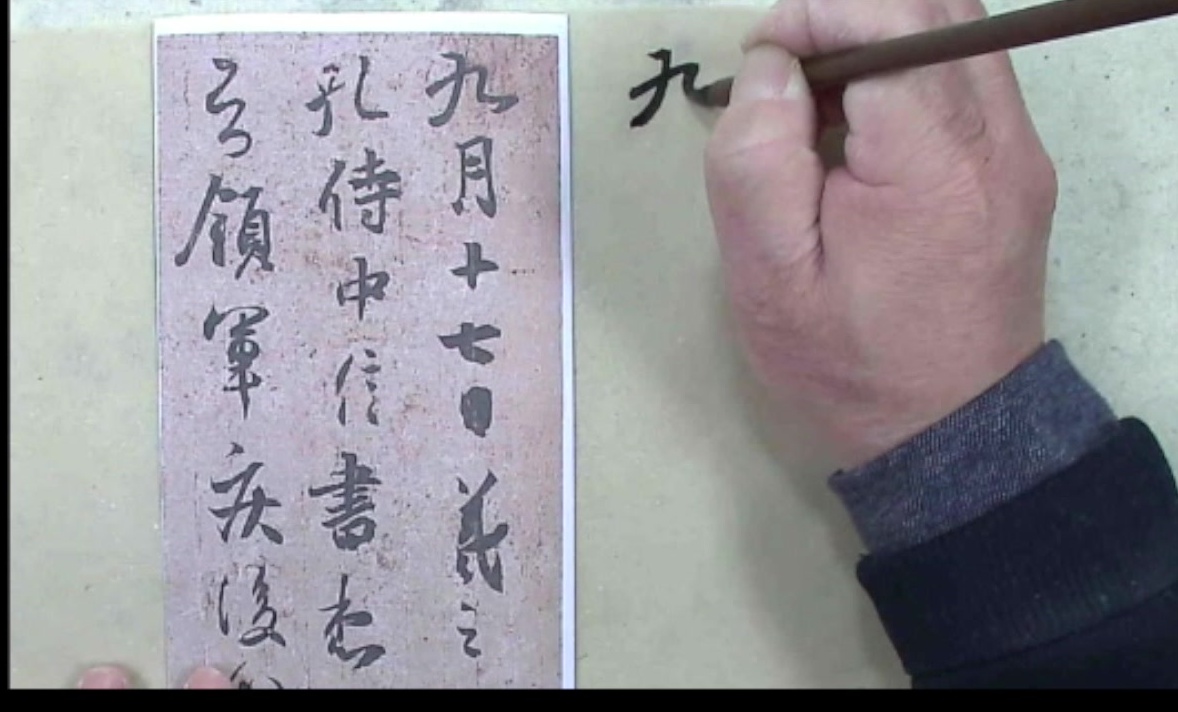 九
九月十七日羲之
孔侍中信書想
領軍疾後